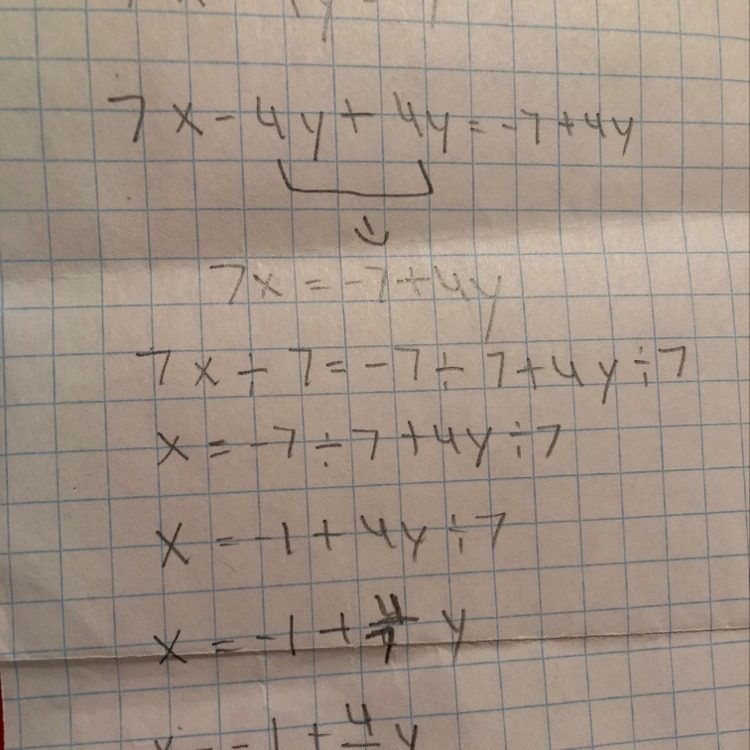 7x - 4y + 4y = -7 + 4y
7x = -7 + 4y
7x ÷ 7 = -7 ÷ 7 + 4y ÷ 7
x = -7 ÷ 7 + 4y ÷ 7
x = -1 + 4y ÷ 7
x = -1 + 4/7 y